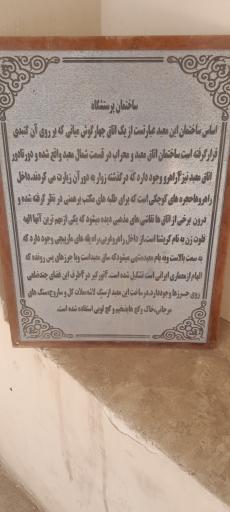 ساختمان پرستشگاه
اساس ساختمان این معبد عبارتست از یک اتاق چهارگوش میانی که بر روی آن گنبدی
قرارگرفته است ساختمان اتاق معبد و محراب در قسمت شمال معبد واقع شده و دورتادور
اتاق معبد نیز آراهرو وجود دارد که درگذشته زوار به دور آن زیارت می کردند.داخل
راهروهاحجره های کوچکی است که برای طلبه های مکتب برهمنی در نظر گرفته شده و
درون برخی از اتاق ها نقاشی های مذهبی دیده میشود که یکی ازمهم ترین آنها الهه
فلوت زن به نام کریشنا است.از داخل راهرو غربی،راه پله های مارپیچی وجود دارد که
به سمت بالاست وبه بام معبدمنتهی میشودکه سابق معبداست وبا جرزهای پس رونده که
الهام ازمعماری ایرانی است تشکیل شده است. اطراف این فضای چندضلعی
روی جسرزها وجوددارد.در ساخت این معبد ازسنگ لاشه،ملات گل و ساروج،سنگ های
مرجانی،خاک وگچ هاباضخیم و گچ لویی استفاده شده است.